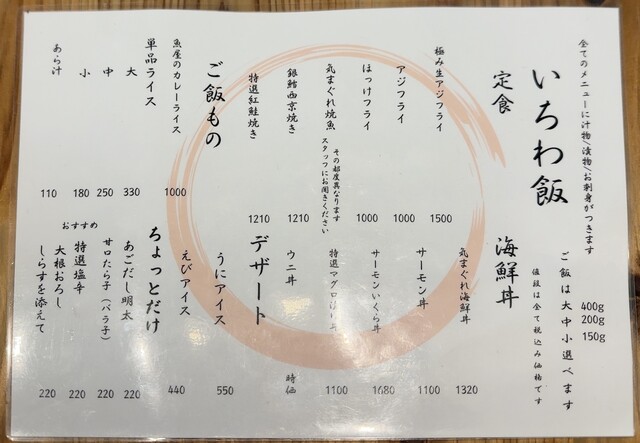 全てのメニューに汁物/漬物/お刺身がつきます
いちわ飯
ご飯は大中小選べます
400g
200g
150g
値段は全て税込み価格です
定食
極み生アジフライ 1500
アジフライ 1000
ほっけフライ 1000
気まぐれ焼魚
その都度異なります
スタッフにお聞きください
銀鱈西京焼き 1210
特選紅鮭焼き 1210
ご飯もの
魚屋のカレーライス 1000
単品ライス
大 330
中 250
小 180
あら汁 110
海鮮丼
気まぐれ海鮮丼 1320
サーモン丼 1100
サーモンいくら丼 1680
特選マグロ 1100
ウニ丼 時価
デザート
うにアイス 550
えびアイス 440
ちょっとだけ
あごだし明太 220
甘口たら子(バラ子) 220
おすすめ
特選塩辛 220
大根おろし
しらすを添えて 220